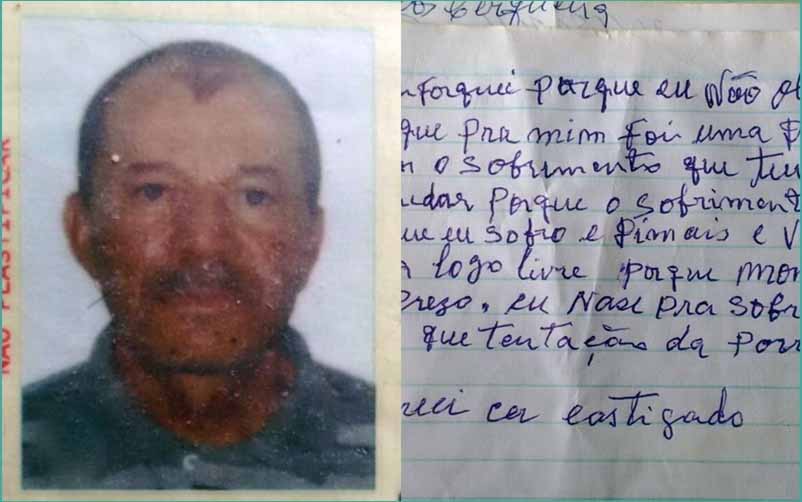 NÃO PLASTIFICAR
Cerqueira
nforquei porque eu Não
que pra mim foi uma
o sofrimento que teu
udar porque o sofriment
ue eu sofro e Dimais e V
logo livre porque mor
preso. eu Nase pra sofr
que tentação da porr
uei cer castigado